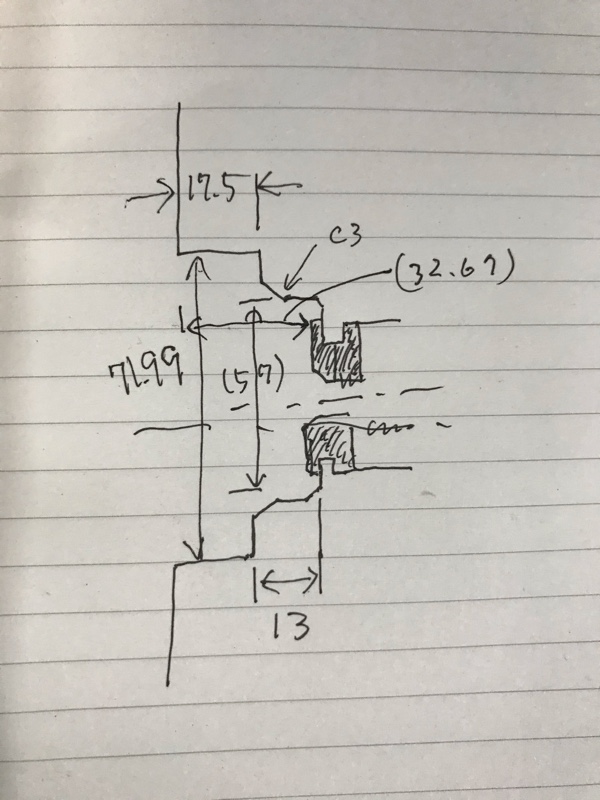 17.5
C3
(32.67)
71.99
(57)
13